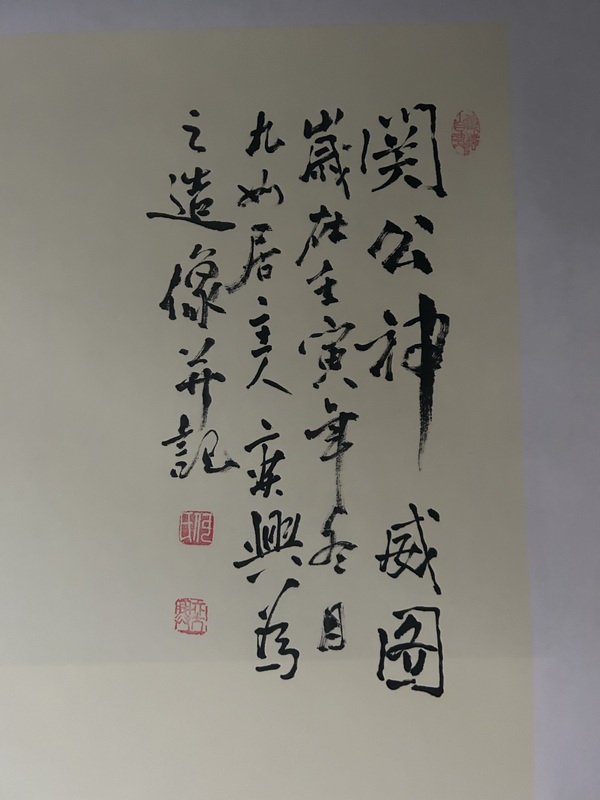 関公神威图
歲在壬寅年冬日
九如居主人亦興為
之造像并記